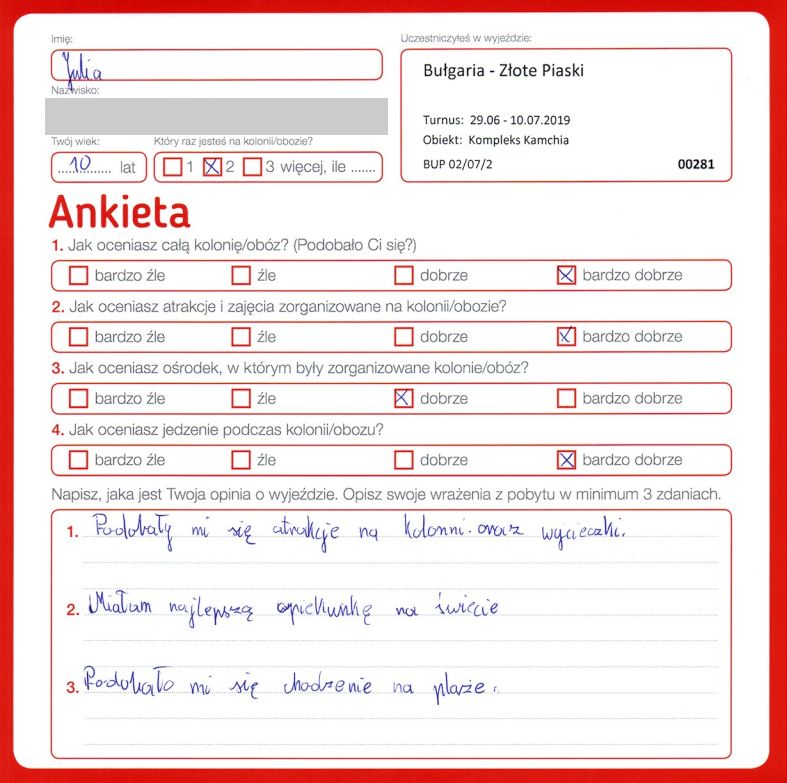 Imię:
Julia
Nazwisko:
Twój wiek:
10 lat
Który raz jesteś na kolonii/obozie?
1 2 3 więcej, ile .......
Uczestniczyłeś w wyjeździe:
Bułgaria - Złote Piaski
Turnus: 29.06 - 10.07.2019
Obiekt: Kompleks Kamchia
BUP 02/07/2 00281
Ankieta
1. Jak oceniasz całą kolonię/obóz? (Podobało Ci się?)
bardzo źle źle dobrze bardzo dobrze
2. Jak oceniasz atrakcje i zajęcia zorganizowane na kolonii/obozie?
bardzo źle źle dobrze bardzo dobrze
3. Jak oceniasz ośrodek, w którym były zorganizowane kolonie/obóz?
bardzo źle źle dobrze bardzo dobrze
4. Jak oceniasz jedzenie podczas kolonii/obozu?
bardzo źle źle dobrze bardzo dobrze
Napisz, jaka jest Twoja opinia o wyjeździe. Opisz swoje wrażenia z pobytu w minimum 3 zdaniach.
1. Podobały mi się atrakcje na kolonni. oraz wycieczki.
2. Miałam najlepszą opiekunkę na świecie
3. Podobało mi się chodzenie na plaże.